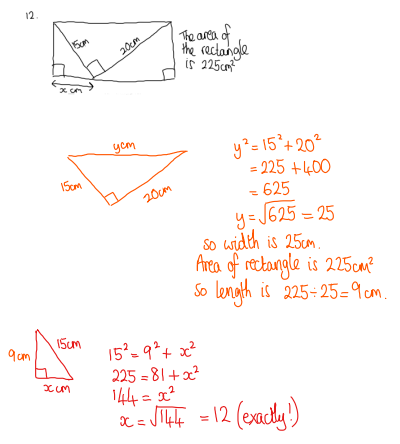 12.
15cm
20cm
The area of
the rectangle
is 225cm²
x cm
ycm
15cm
20cm
y² = 15² + 20²
= 225 + 400
= 625
y = √625 = 25
so width is 25cm.
Area of rectangle is 225cm²
so length is 225 ÷ 25 = 9cm.
9cm
15cm
x cm
15² = 9² + x²
225 = 81 + x²
144 = x²
x = √144 = 12 (exactly!)